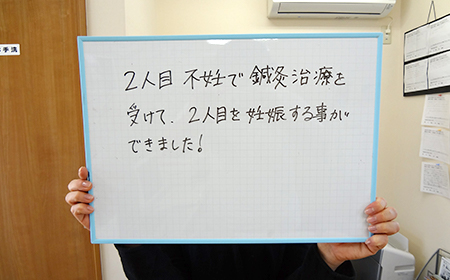 ２人目 不妊で鍼灸治療を
受けて、２人目を妊娠する事が
できました！